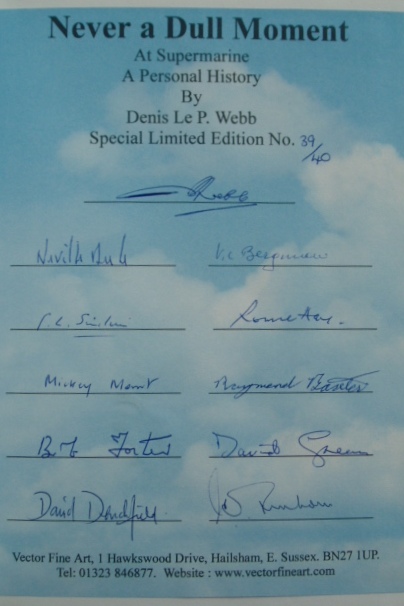 Never a Dull Moment
At Supermarine
A Personal History
By
Denis Le P. Webb
Special Limited Edition No. 39/40
Webb
Neville Duke V.C. Bergman
Mickey Mount Raymond Baxter
Bob Foster David Green
David Denchfield
Vector Fine Art, 1 Hawkswood Drive, Hailsham, E. Sussex. BN27 1UP.
Tel: 01323 846877. Website : www.vectorfineart.com